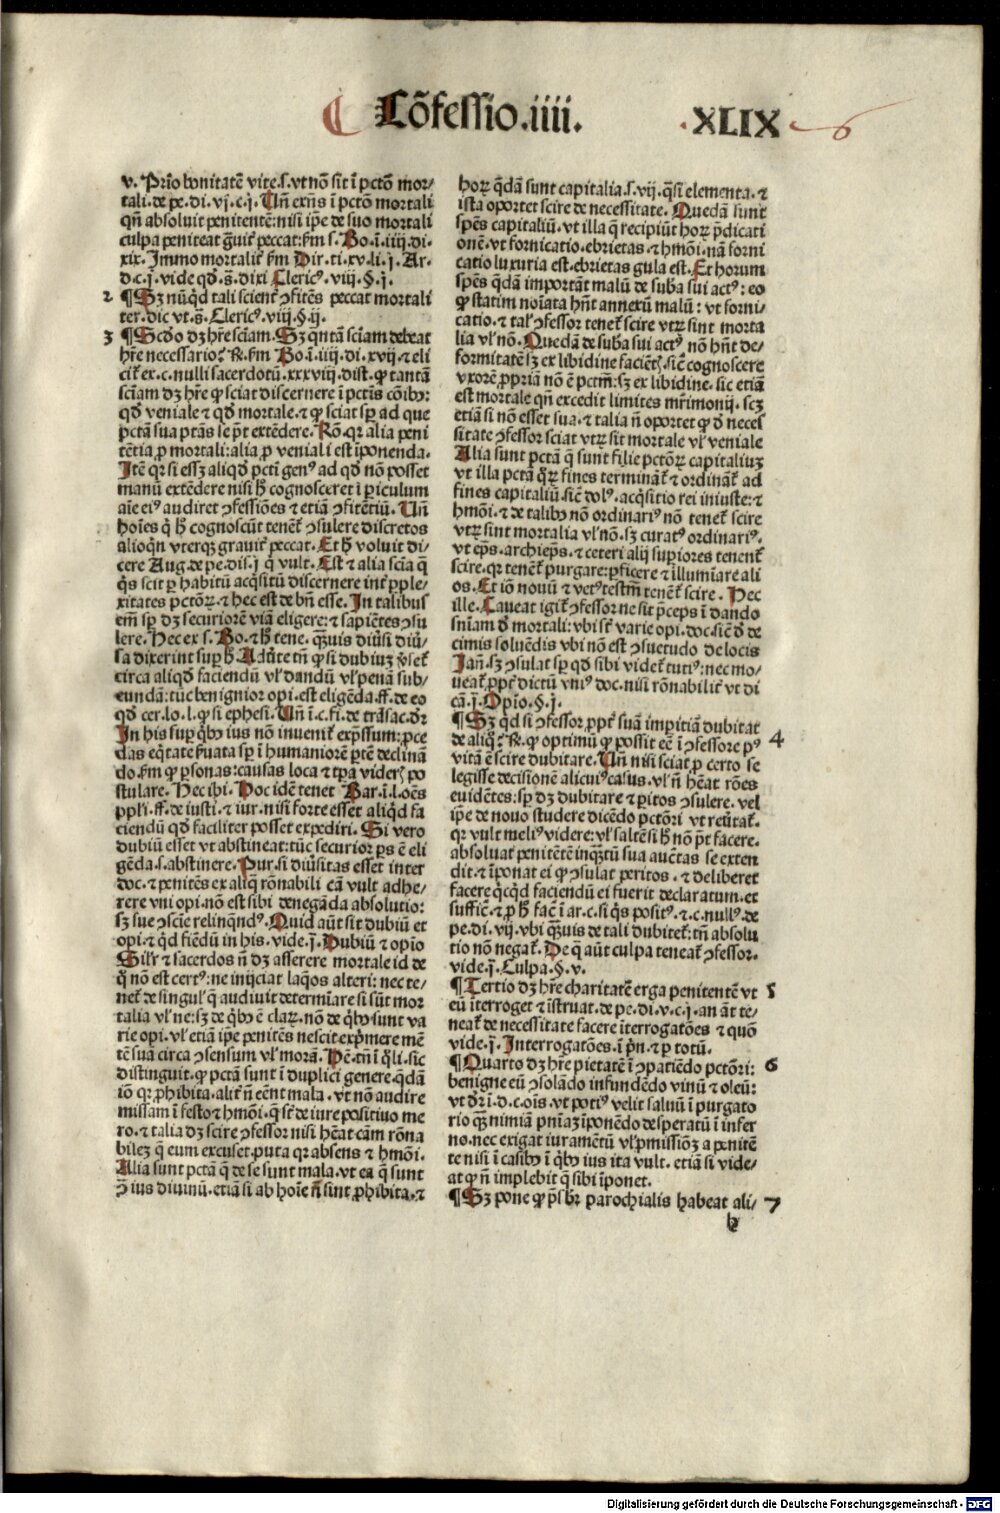 Cõfessio.iiii.
XLIX
6
v. Primo bonitatẽ vite.s.vt nõ sit ĩ pctõ mor/
tali.de pe.di.vj.c.j. Uñ exñs ĩ pctõ mortali
qñ absoluit penitentẽ:nisi ipẽ de suo mortali
culpa peniteat grauit̃ peccat:ẜm s. Bo.ĩ.iiij.di.
xix. Immo mortalit̃ ẜm Dir.ti.xv.li.j. Ar.
d.c.j.vide qđ.s̃.dixi Clericꝰ.viij.§.j.
2 ¶Sꝫ nũqđ tali scient̃ ꝯfitẽs peccat mortali
ter.dic vt.s̃.Clericꝰ.viij.§.ij.
3 ¶Scđo dꝫ hr̃e sciam̃. Sꝫ qntã sciam̃ debeat
hr̃e necessario: R̃.ẜm Bo.ĩ.iiij.di.xvij.⁊ eli
cit̃ ex.c.nulli sacerdotũ.xxxviij.dist.ꝙ tantã
sciam̃ dꝫ hr̃e ꝙ sciat discernere ĩ pctĩs cõibꝰ:
qđ veniale ⁊ qđ mortale.⁊ ꝙ sciat sꝑ ad que
pctã sua ptãs se pñt extẽdere. Rõ.qꝛ alia peni
tẽtia ꝓ mortali:alia ꝓ veniali est ĩponenda.
Itẽ qꝛ si essꝫ aliqđ pcti genꝰ ad qđ nõ posset
manũ extẽdere nisi h̃ cognosceret ĩ ꝑiculum
aĩe eiꝰ audiret ꝯfessiões ⁊ etiã ꝯfitẽtiũ. Uñ
hoĩes q̃ h̃ cognoscũt tenẽt̃ ꝯsulere discretos
alioqñ vterqꝫ grauit̃ peccat. Et h̃ voluit di/
cere Aug.de pe.dis.j q̃ vult. Est ⁊ alia scia q̃
qs scit ꝑ habitũ acqsitũ discernere int̃ ꝑple/
xitates pctõꝝ.⁊ hec est de bñ esse. In talibus
em̃ sꝑ dꝫ securiorẽ viã eligere:⁊ sapiẽtes ꝯsu
lere. Hec ex s. Bo.⁊ h̃ tene. qꝫuis diũsi diũ/
sa dixerint suꝑ h̃. Aduẽte tñ ꝙ si dubiuꝫ
circa aliqđ faciendũ vl̃ dandũ vl̃ penã sub/
eundã:tũc benignior opi.est eligẽda.ff.de eo
qđ cer.lo.l.ꝙ si ephesi. Uñ ĩ.c.fi.de trãsac.dr̃
In his suꝑ qbꝰ ius nõ inuenit̃ exp̃ssum:ꝓce
das eqtate ẜuata sꝑ ĩ humaniorẽ ptẽ declinã
do ẜm ꝙ ꝑsonas:causas loca ⁊ tꝑa videris po
stulare. Hec ibi. Hoc idẽ tenet Bar.ĩ.l.oẽs
ppl̃i.ff.de iusti.⁊ iur.nisi forte esset aliqđ fa
ciendũ qđ faciliter posset expediri. Si vero
dubiũ esset vt abstineat:tũc securior ps ẽ eli
gẽda.s.abstinere. Pur.si diũsitas esset inter
doc.⁊ penitẽs ex aliq̃ rõnabili cã vult adhe/
rere vni opi.nõ est sibi denegãda absolutio:
sꝫ sue ꝯscĩe relinqndꝰ. Quid aũt sit dubiũ et
opi.⁊ qđ fiẽdũ in his.vide.j̃. Dubiũ ⁊ opio
Silr̃ ⁊ sacerdos ñ dꝫ asserere mortale id de
q̃ nõ est certꝰ:ne inijciat laq̃os alteri: nec te/
net̃ de singul̃ q̃ audiuit determĩare si sũt mor
talia vl̃ ne:sꝫ de qbꝰ ẽ claꝝ.nõ de qbꝰ sunt va
rie opi.vl̃ etiã ipẽ penitẽs nescit exp̃mere mẽ
tẽ suã circa ꝯsensum vl̃ morã. Pe.tñ ĩ q̃li.sic
distinguit.ꝙ pctã sunt ĩ duplici genere.q̃dã
iõ qꝛ ꝓhibita.alit̃ ñ eẽnt mala.vt nõ audire
missam ĩ festo ⁊ hmõi.q̃ st̃ de iure positiuo me
ro.⁊ talia dꝫ scire ꝯfessor nisi hẽat cãm rõna
bileꝫ q̃ eum excuset.puta qꝛ absens ⁊ hmõi.
Alia sunt pctã q̃ de se sunt mala.vt ea q̃ sunt
ꝯ̃ ius diuinũ.etiã si ab hoĩe ñ sint ꝓhibita.⁊
hoꝝ q̃dã sunt capitalia.s.vij.q̃si elementa.⁊
ista oportet scire de necessitate. Quedã sunt
spẽs capitaliũ.vt illa q̃ recipiũt hoꝝ p̃dicati
onẽ.vt fornicatio.ebrietas.⁊ hmõi.nã forni
catio luxuria est.ebrietas gula est. Et horum
spẽs q̃dã important̃ malũ de suba sui actꝰ: eo
ꝙ statim noĩata hñt annexũ malũ: vt forni/
catio.⁊ tal̃ ꝯfessor tenet̃ scire vtꝝ sint morta
lia vl̃ nõ. Quedã de suba sui actꝰ nõ hñt de/
formitatẽ sꝫ ex libidine faciẽtis.sic̃ cognoscere
vxorẽ ꝓpriã nõ ẽ pctm̃:sꝫ ex libidine. sic etiã
est mortale qñ excedit limites mr̃imonij. scꝫ
etiã si nõ esset sua.⁊ talia ñ oportet ꝙ đ neces
sitate ꝯfessor sciat vtꝝ sit mortale vl̃ veniale
Alia sunt pctã q̃ sunt filie pctõꝝ capitaliuꝫ
vt illa pctã q̃ꝝ fines terminãt̃ ⁊ ordinãt̃ ad
fines capitaliũ.sic̃ dolꝰ.acqsitio rei iniuste:⁊
hmõi.⁊ de talibꝰ nõ ordinariꝰ nõ tenet̃ scire
vtꝝ sint mortalia vl̃ nõ.sꝫ curatꝰ ordinariꝰ.
vt ep̃s.archiep̃s.⁊ ceteri alij suꝑiores tenent̃
scire.qꝛ tenẽt̃ purgare:ꝑficere ⁊ illumĩare ali
os. Et iõ nouũ ⁊ vetꝰ testm̃ tenẽt̃ scire. Hec
ille. Caueat igit̃ ꝯfessor ne sit p̃ceps ĩ dando
snĩam đ mortali:vbi st̃ varie opi.doc.sic̃ đ de
cimis soluẽdis vbi nõ est ꝯsuetudo de locis
Jañ.sꝫ ꝯsulat sꝑ qđ sibi videt̃ tutiꝰ:nec mo/
ueat̃ ꝓpt̃ dictũ vniꝰ doc.nisi rõnabilit̃ vt di
cã.j̃. Opio.§.j.
¶Sꝫ qđ si ꝯfessor ꝓpt̃ suã imꝑitiã dubitat 4
de aliq̃: R̃.ꝙ optimũ ꝙ possit eẽ ĩ ꝯfessore pꝰ
vitã ẽ scire dubitare. Uñ nisi sciat ꝓ certo se
legisse decisionẽ alicuiꝰ casus.vl̃ ñ hẽat rões
euidẽtes:sꝑ dꝫ dubitare ⁊ ꝑitos ꝯsulere. vel
ipẽ de nouo studere dicẽdo pctõri vt reũtat̃.
qꝛ vult meliꝰ videre:vl̃ saltẽ si h̃ nõ põt facere.
absoluat penitẽtẽ inqꝫtũ sua auctas se exten
dit.⁊ ĩponat ei ꝙ ꝯsulat peritos.⁊ deliberet
facere qcqđ faciendũ ei fuerit declaratum.et
suffic̃.⁊ ꝓ h̃ fac̃ ĩ ar.c.si qs positꝰ.⁊.c.nullꝰ.de
pe.di.vij.vbi qꝫuis de tali dubitet̃:tñ absolu
tio nõ negat̃. De q̃ aũt culpa teneat̃ ꝯfessor.
vide.j̃. Culpa.§.v.
¶Tertio dꝫ hr̃e charitatẽ erga penitentẽ vt 5
eũ ĩterroget ⁊ ĩstruat.de pe.di.v.c.j.an ãt te/
neat̃ de necessitate facere ĩterrogatões ⁊ quõ
vide.j̃. Interrogatões.ĩ pñ.⁊ ꝑ totũ.
¶Quarto dꝫ hr̃e pietatẽ ĩ ꝯpatiẽdo pctõri: 6
benigne eũ ꝯsolãdo infundẽdo vinũ ⁊ oleũ:
vt dr̃ ĩ.d.c.oĩs.vt potiꝰ velit saluũ ĩ purgato
rio qꝫ nimiã pniaꝫ ĩponẽdo desperatũ ĩ infer
no.nec exigat iuramẽtũ vl̃ ꝓmissioꝫ a penitẽ
te nisi ĩ casibꝰ ĩ qbꝰ ius ita vult. etiã si vide/
at ꝙ ñ implebit q̃ sibi ĩponet.
¶Sꝫ pone ꝙ p̃sbr̃ parochialis habeat ali/ 7
h
Digitalisierung gefördert durch die Deutsche Forschungsgemeinschaft - DFG